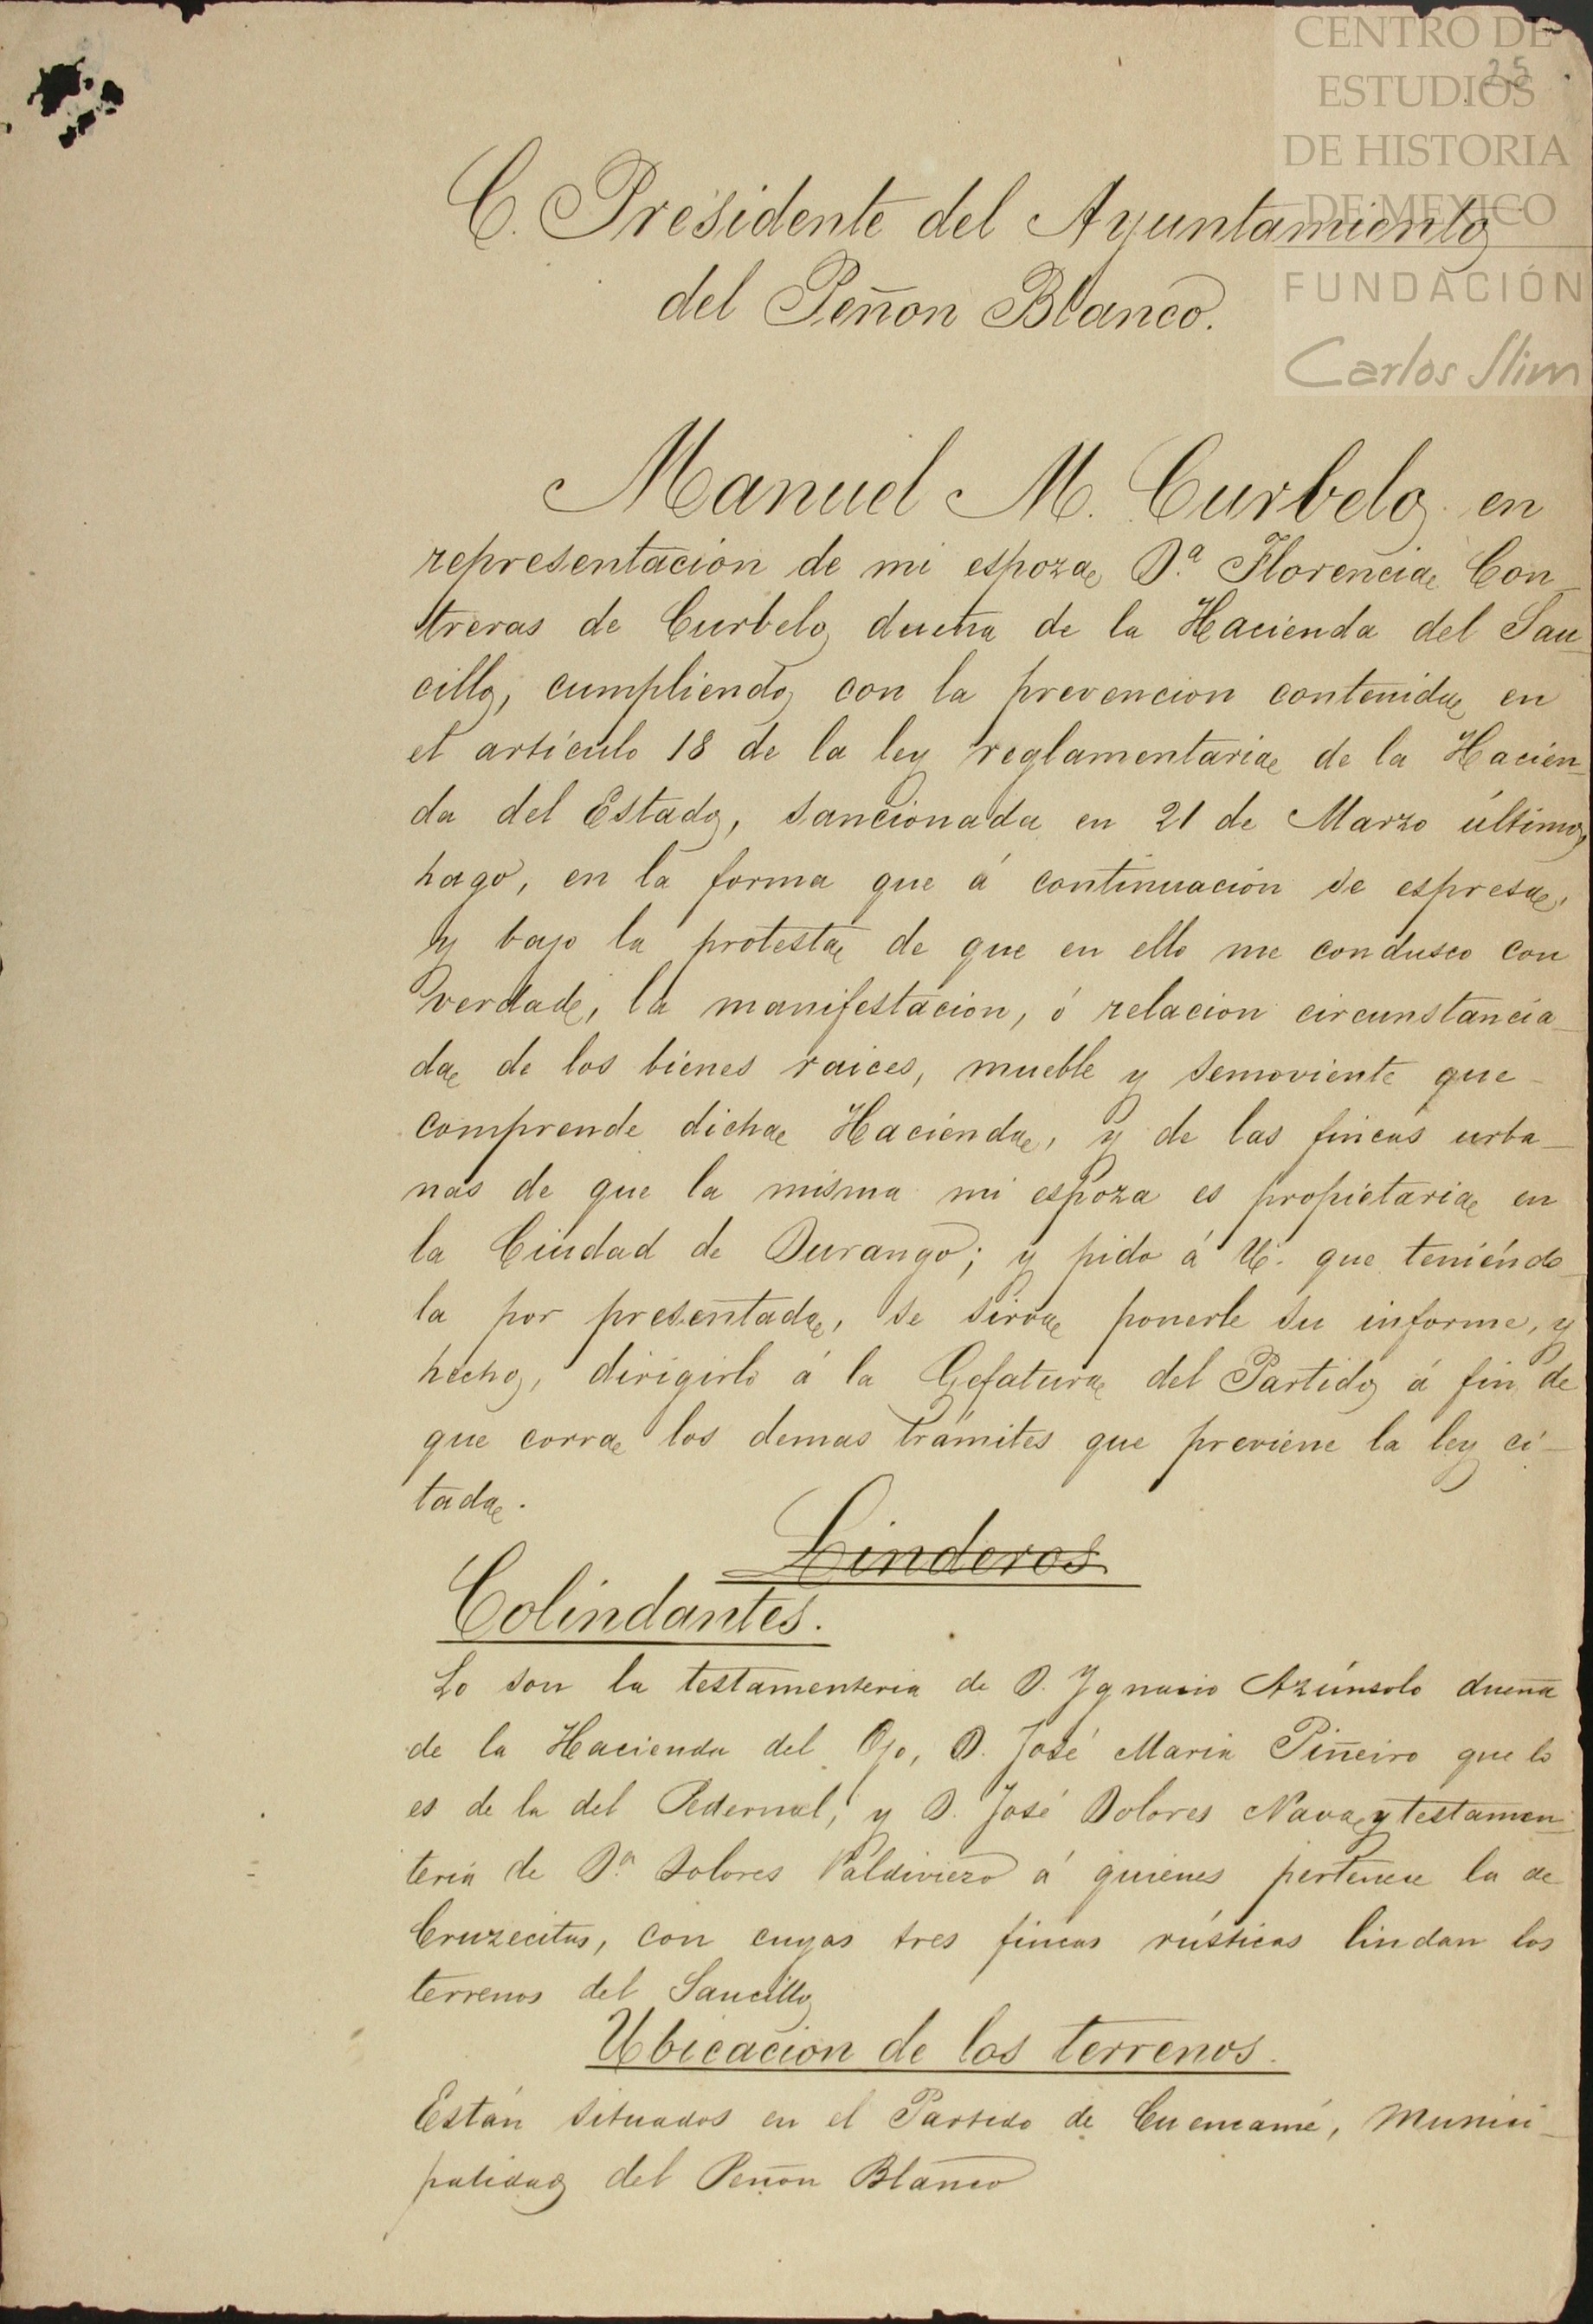 CENTRO DE
ESTUDIOS
DE HISTORIA
DE MEXICO
FUNDACIÓN
Carlos Slim
25
C. Presidente del Ayuntamiento
del Peñon Blanco.
Manuel M. Curbelo en
representación de mi espoza D.ª Florencia Con_
treras de Curbelo dueña de la Hacienda del Sau_
cillo, cumpliendo con la prevencion contenida en
el artículo 18 de la ley reglamentaria de la Hacien_
da del Estado, sancionada en 21 de Marzo último,
hago, en la forma que á continuación se espresa,
y bajo la protesta de que en ello me condusco con
verdad, la manifestacion, ó relacion circunstancia_
da de los bienes raices, mueble y semoviente que_
comprende dicha Hacienda, y de las fincas urba_
nas de que la misma mi espoza es propietaria en
la Ciudad de Durango; y pido á U. que teniéndo_
la por presentada, se sirva ponerle su informe, y
hecho, dirigirlo á la Gefatura del Partido á fin de
que corra los demas trámites que previene la ley ci_
tada.
Linderos
Colindantes.
Lo son la testamenteria de D. Ygnacio Azúnsolo dueña
de la Hacienda del Ojo, D. José Maria Piñeiro que lo
es de la del Pedernal, y D. José Dolores Nava y testamen_
teria de D.ª Dolores Valdiviezo á quienes pertenece la de
Cruzecitas, con cuyas tres fincas rústicas lindan los
terrenos del Saucillo
Ubicacion de los terrenos.
Están situados en el Partido de Cuencamé, Munici_
palidad del Peñon Blanco